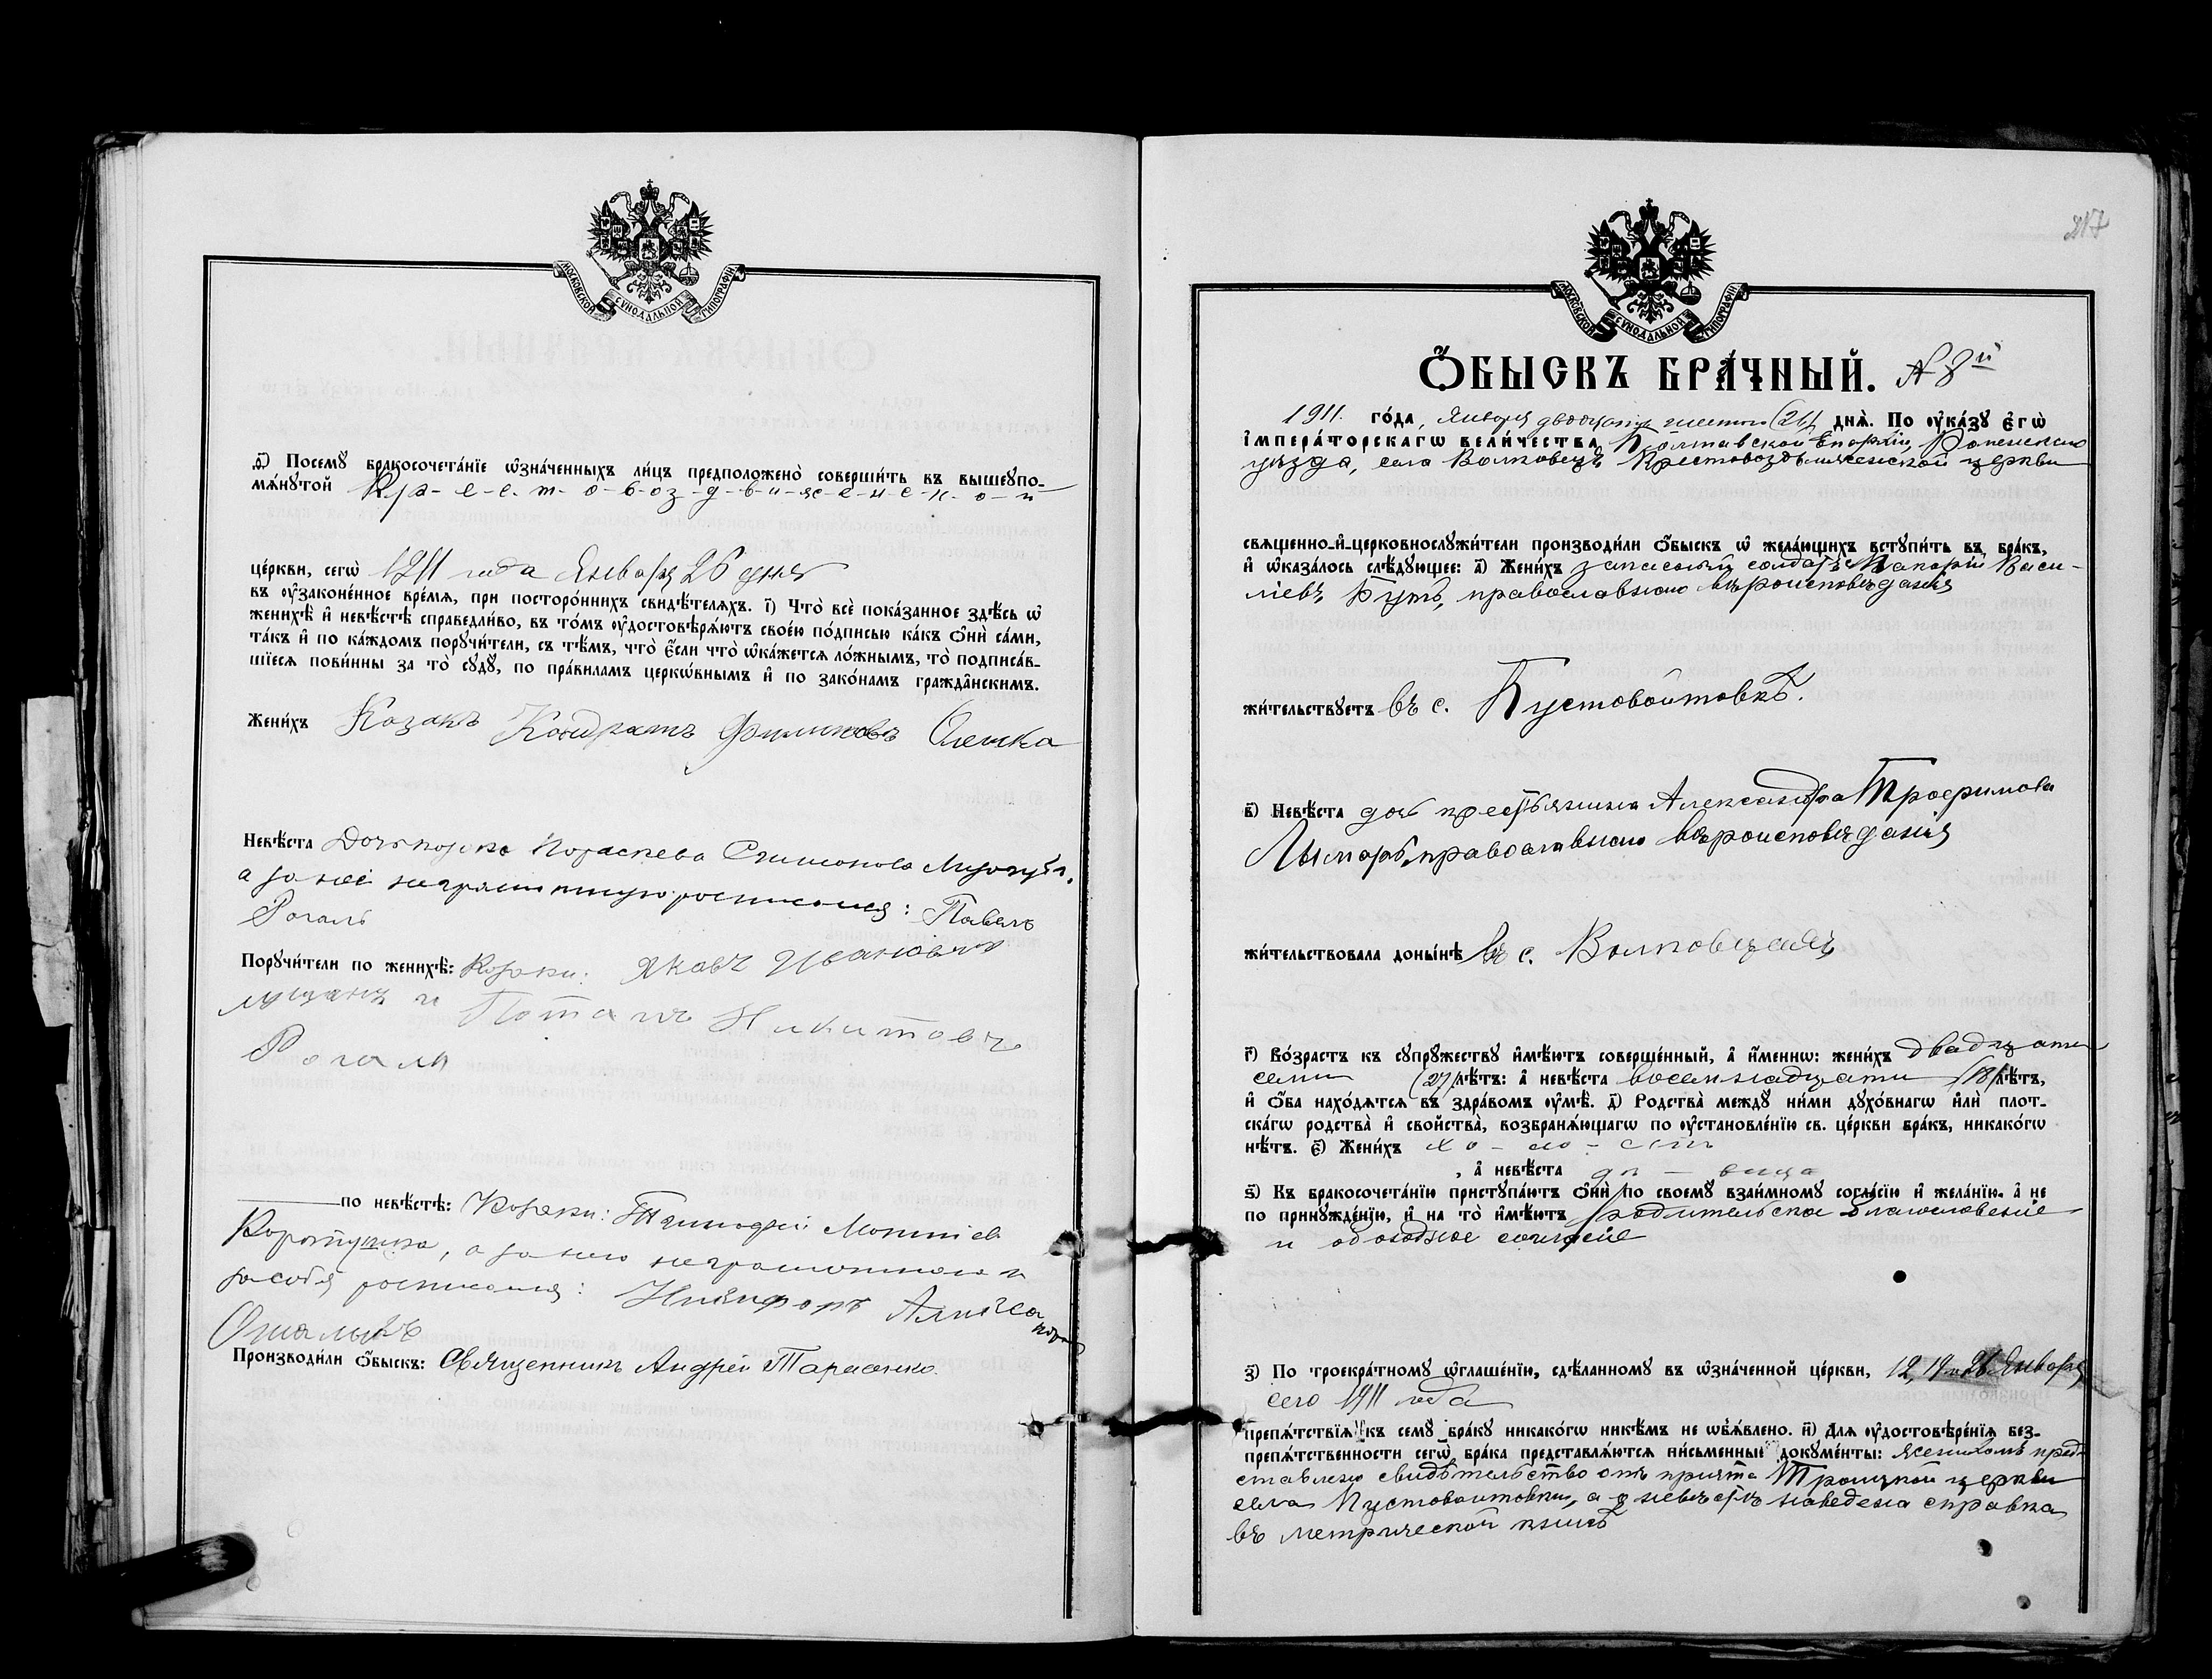 МОСКОВСКОЙ СѴНОДАЛЬНОЙ ТИПОГРАФІИ
ѳ҃) Посемꙋ̀ бракосочета́нїе ѡ҆зна́ченныхъ ли́цъ предположено̀ соверши́ть въ вышеꙋпо-
мѧ́нꙋтой Кр-е-с-т-о-в-оз-д-в-и-ж-е-н-с-к-о-й
це́ркви, сегѡ̀ 1911 года Января 26 дня
въ ᲂу҆зако́ненное вре́мѧ, при посторо́ннихъ свидѣ́телѧхъ. і҃) Что̀ всѐ пока́занное здѣ́сь ѡ҆
женихѣ̀ и҆ невѣ́стѣ справедли́во, въ то́мъ ᲂу҆достовѣрѧ́ютъ свое́ю по́дписью ка́къ ѻ҆нѝ са́ми,
та́къ и҆ по ка́ждомъ порꙋчи́тели, съ тѣ́мъ, что̀ є҆́сли что̀ ѡ҆ка́жетсѧ ло́жнымъ, то̀ подписа́в-
шїесѧ пови́нны за то̀ сꙋдꙋ̀, по пра́виламъ церкѡ́внымъ и҆ по зако́намъ гражда̑нскимъ.
Жени́хъ Козакъ Кондратъ Филиповъ Олешко
Невѣ́ста Дочь козака Параскева Симонова
а за неё неграмотную росписался: Павелъ
Рогаль
Порꙋчи́тели по женихѣ̀: Козаки: Яковъ Ивановъ
и Потапъ Никитовъ
Рогаль
по невѣ́стѣ: Козаки: Тимофей
а за него неграмотнаго и
за себя росписался: Никифоръ
Производи́ли ѻ҆́быскъ: Священникъ Андрей Тарасенко.
217
МОСКОВСКОЙ СѴНОДАЛЬНОЙ ТИПОГРАФІИ
Ѻ҆БЫСКЪ БРА́ЧНЫЙ. № 8й
1911. го́да, Января двадцать шестого (26) днѧ̀. По ᲂу҆ка́зꙋ є҆гѡ̀
і҆мпера́торскагѡ вели́чества, Полтавской Епархіи, Роменскаго
уѣзда, села Волковецъ Крестовоздвиженской церкви
свѧщенно-и҆-церковнослꙋжи́тели производи́ли ѻ҆́быскъ ѡ҆ жела́ющихъ встꙋпи́ть въ бра́къ,
и҆ ѡ҆каза́лось слѣ́дꙋющее: а҃) Жени́хъ запасный солдатъ Макарій Васи-
лiевъ Бутъ, православнаго вѣроисповѣданія
жи́тельствꙋетъ въ с. Пустовойтовкѣ.
в҃) Невѣ́ста дочь крестьянина Александра Трофимова
Лымарь, православнаго вѣроисповѣданія
жи́тельствовала доны́нѣ въ с. Волковцахъ
г҃) Во́зрастъ къ сꙋпрꙋ́жествꙋ и҆мѣ́ютъ соверше́нный, а҆ и҆́меннѡ: жени́хъ двадцати
семи (27) лѣ́тъ: а҆ невѣ́ста восемнадцати (18) лѣ́тъ,
и҆ ѻ҆́ба нахо́дѧтсѧ въ здра́вомъ ᲂу҆мѣ̀. д҃) Родства̀ междꙋ̀ ни́ми дꙋхо́внагѡ и҆лѝ плот-
ска́гѡ родства̀ и҆ сво́йства̀, возбранѧ́ющагѡ по ᲂу҆становле́нїю св. це́ркви бра́къ, никако́гѡ
нѣ́тъ. є҃) Жени́хъ хо-ло-стъ
, а҆ невѣ́ста дѣ-вица
ѕ҃) Къ бракосочета́нїю пристꙋпа́ютъ ѻ҆нѝ по своемꙋ̀ взаи́мномꙋ согла́сїю и҆ жела́нїю, а҆ не
по принꙋжде́нїю, и҆ на то̀ и҆мѣ́ютъ родительское благословеніе
и обоюдное согласіе
з҃) По троекра́тномꙋ ѡ҆глаше́нїю, сдѣ́ланномꙋ въ ѡ҆зна́ченной це́ркви, 12, Января
сего 1911 года
препѧ́тствїѧ къ семꙋ̀ бра́кꙋ никако́гѡ никѣ́мъ не ѡ҆бъѧ́влено. и҃) Длѧ̀ ᲂу҆достовѣре́нїѧ без-
препѧ́тственности сегѡ̀ бра́ка представлѧ́ютсѧ пи́сьменные докꙋме́нты: женихомъ пред-
ставлено свидѣтельство отъ причта Троицкой церкви
села Пустовойтовки, а о невѣстѣ наведена справка
въ метрической книгѣ